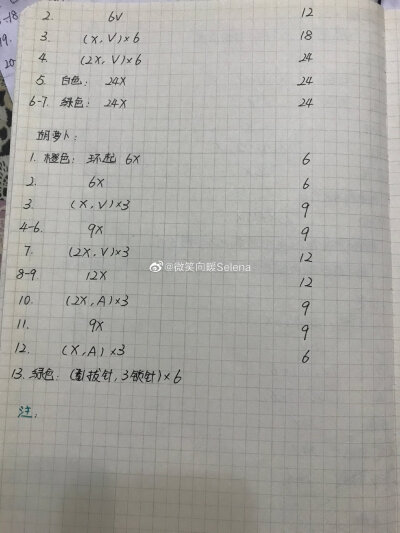 -18
19.
20
2. 6V 12
3. (X, V)×6 18
4. (2X, V)×6 24
5. 白色: 24X 24
6-7. 绿色: 24X 24
胡萝卜:
1. 橙色: 环起 6X 6
2. 6X 6
3. (X, V)×3 9
4-6. 9X 9
7. (2X, V)×3 12
8-9. 12X 12
10. (2X, A)×3 9
11. 9X 9
12. (X, A)×3 6
13. 绿色: (引拔针, 3锁针)×6
注:
@微笑向暖Selena